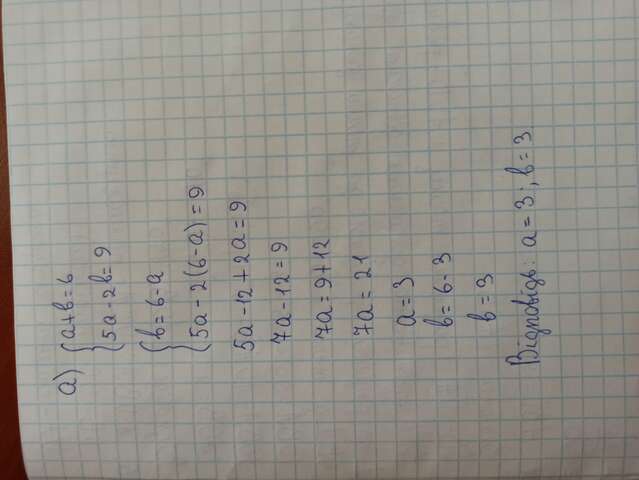 а) { a+b=6
{ 5a-2b=9
{ b=6-a
{ 5a-2(6-a)=9
5a-12+2a=9
7a-12=9
7a=9+12
7a=21
a=3
b=6-3
b=3
Відповідь: a=3; b=3.